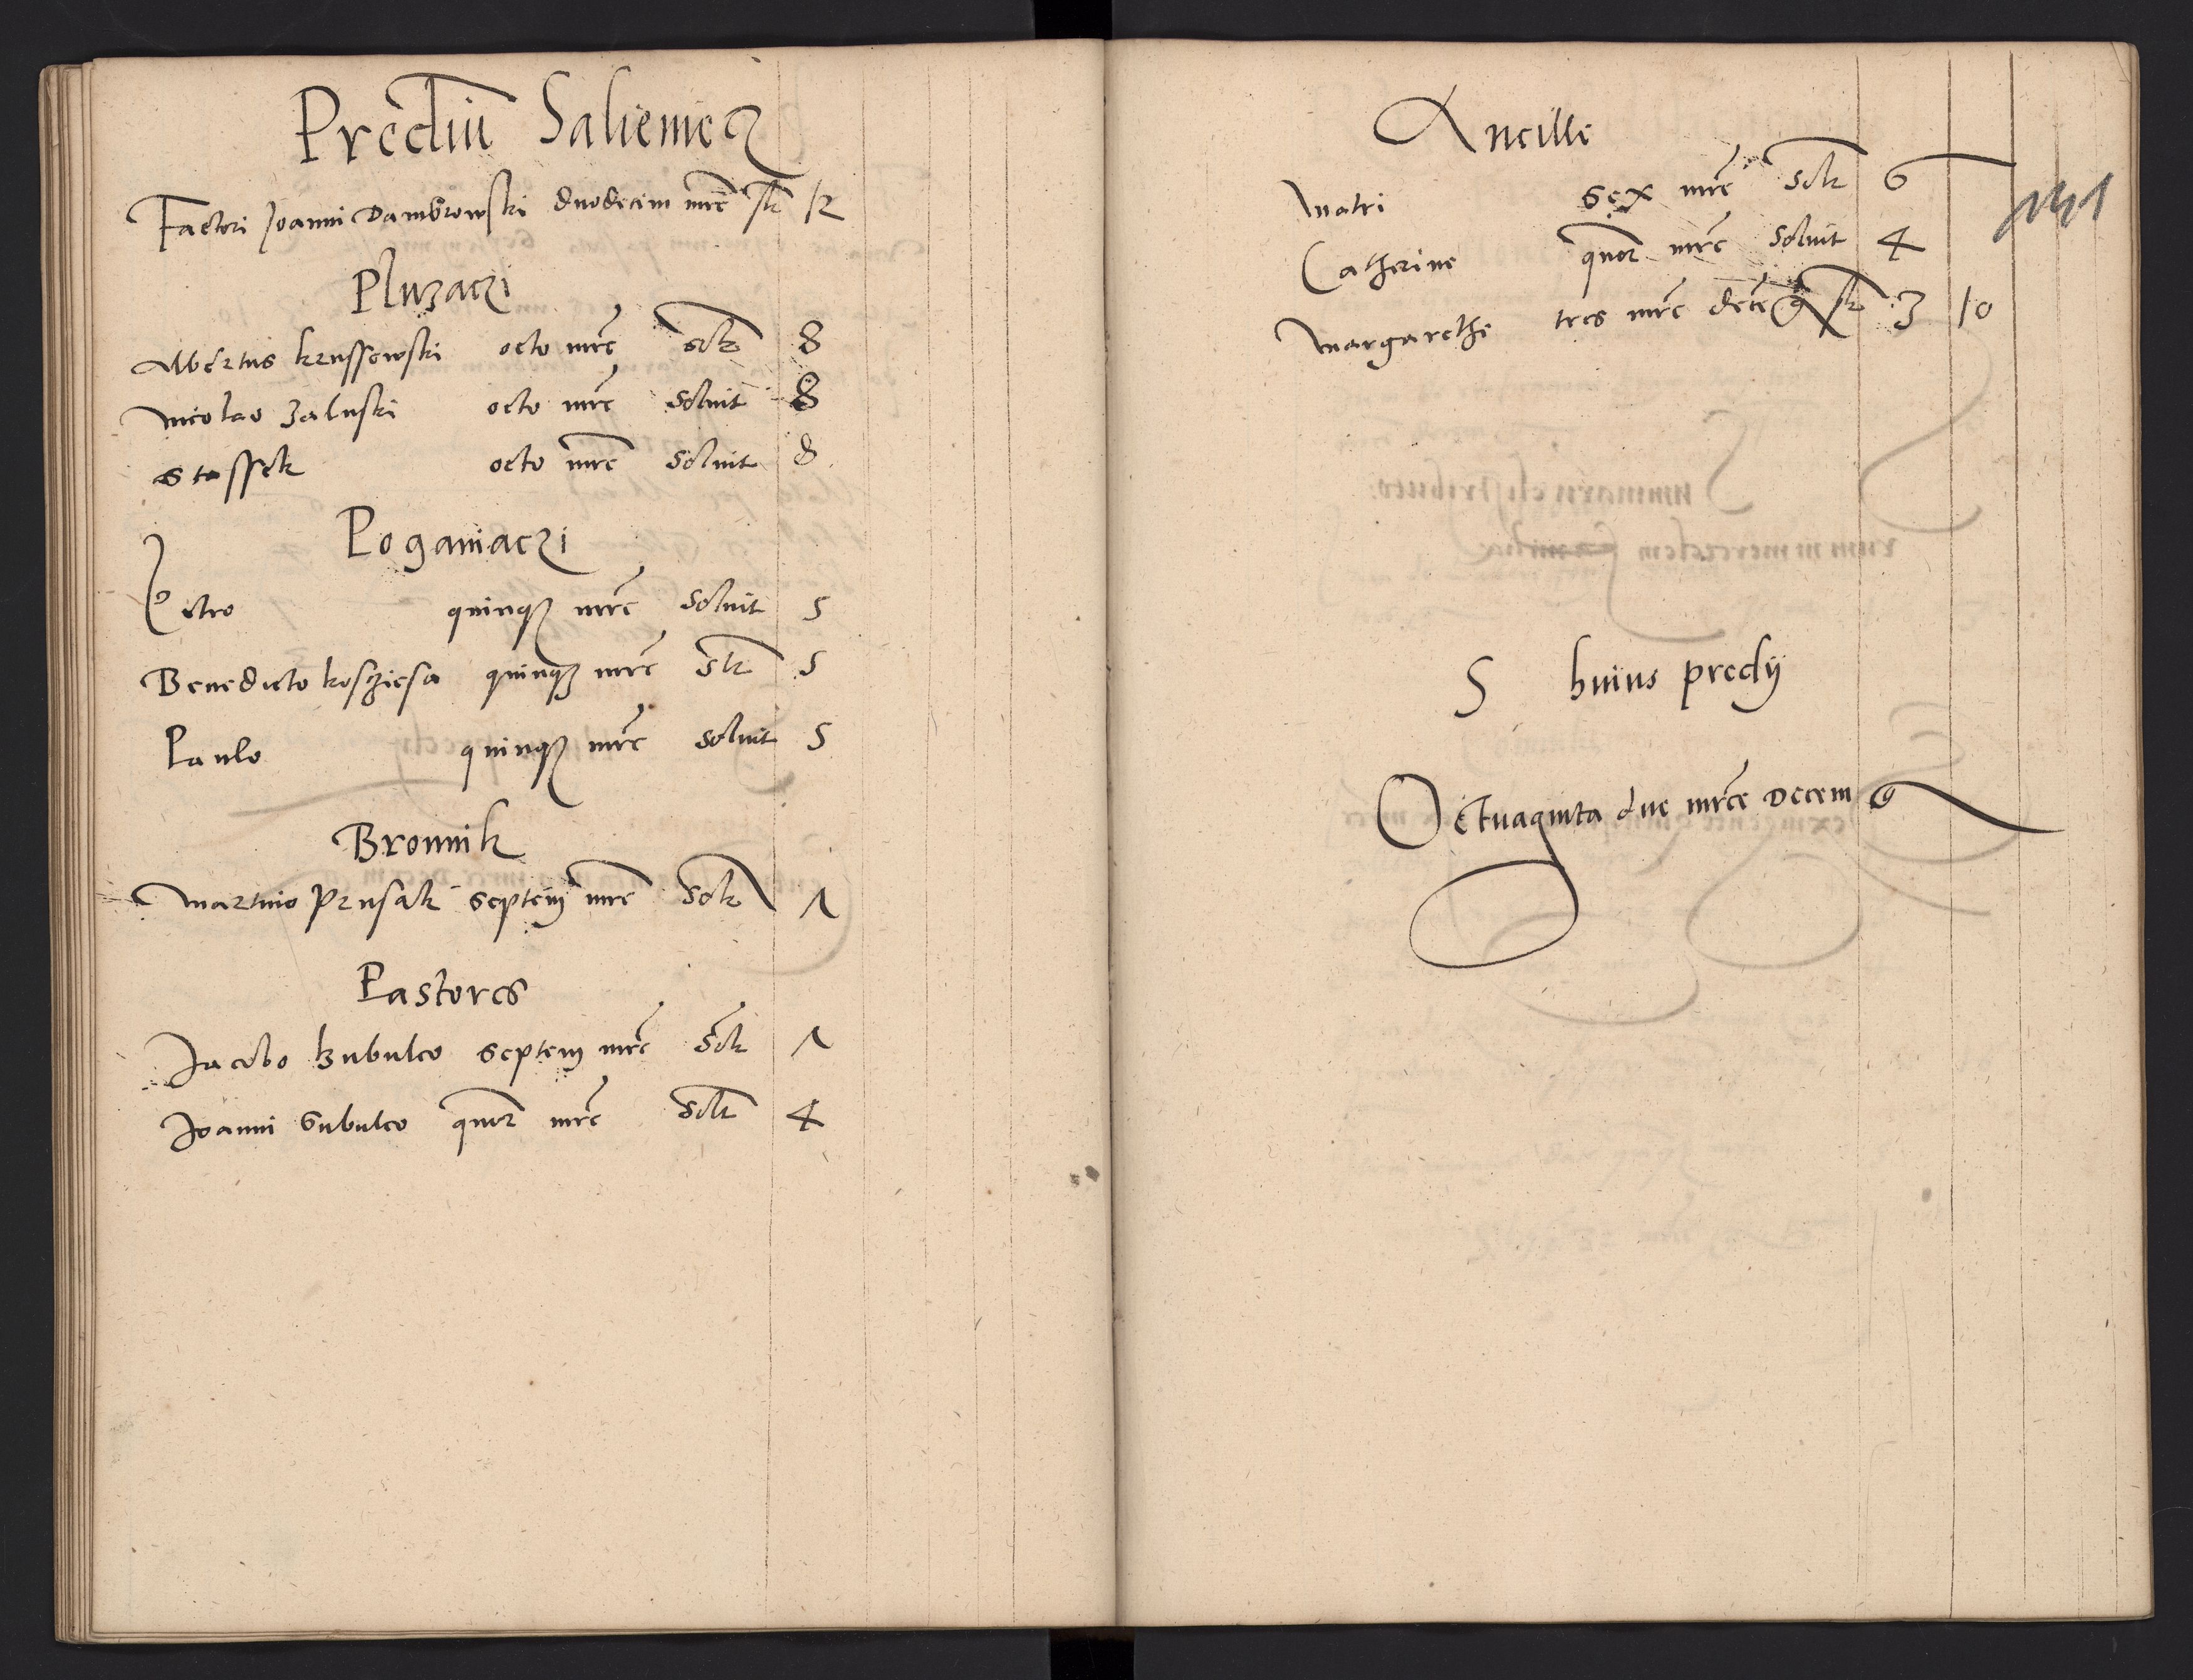 Prediu Salieniecz
Factori Joanni Dambrowski duodecim mrc sk 12
Pluzaczi
Albertus krussewski octo mrc solt 8
Nicolao Zaluski octo mrc soluit 8
Stassek octo mrc soluit 8
Poganiaczi
Petro quinq mrc soluit 5
Benedicto kosziesa quinq mrc solt 5
Paulo quinq mrc soluit 5
Bronnik
Martino Prusak septem mrc solt 7
Pastores
Jacobo bubulco septem mrc solt 7
Joanni Subulco quor mrc solt 4
Ancille
Matri sex mrc solt 6
Catherine quor mrc Soluit 4
Margarethe tres mrc dece g 3 10
S huius predij
Octuaginta due mrce Decem g